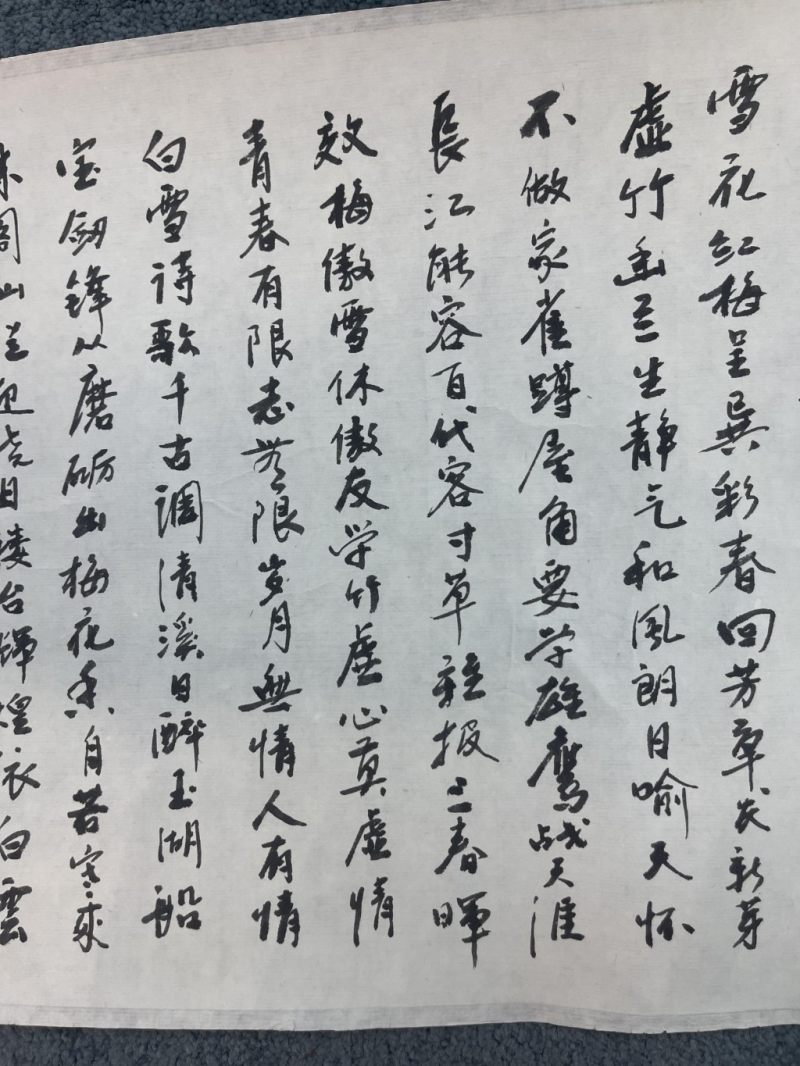 雪花红梅呈異彩春回芳草长新芽
虚竹幽兰生静气和風朗日喻天怀
不做家雀蹲屋角要学雄鹰战天涯
長江能容百代客寸草难报三春暉
效梅傲雪休傲友学竹虚心莫虚情
青春有限志無限岁月無情人有情
白雪诗歌千古调清溪日醉五湖船
宝剑锋从磨砺出梅花香自苦寒来
阁山迎日楼台輝煌白雲